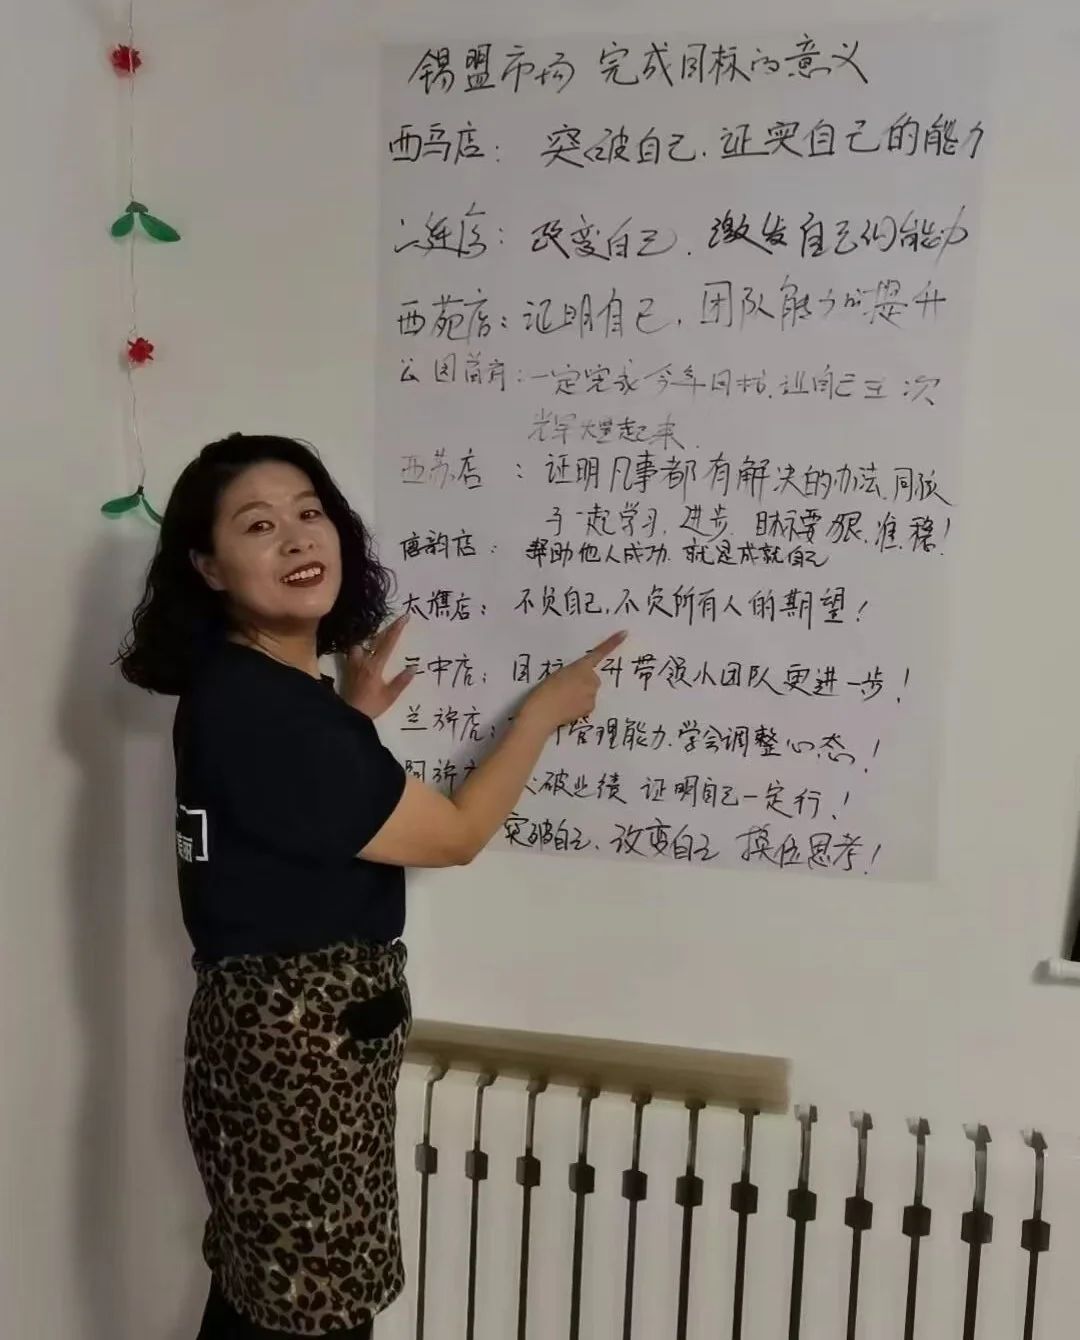 锡盟市场 完成目标的意义
西乌店: 突破自己. 证实自己的能力
二连店: 改变自己. 激发自己的能力
西苑店: 证明自己, 团队能力的提升
公园首府: 一定完成今年目标, 让自己再次
辉煌起来.
西苏店: 证明凡事都有解决的办法, 同孩
子一起学习, 进步, 目标要狠, 准, 稳!
唐韵店: 帮助他人成功. 就是成就自己
太旗店: 不负自己, 不负所有人的期望!
三中店: 目标 升 带领小团队更进一步!
兰旗店: 管理能力, 学会调整心态!
阿旗 破业绩 证明自己一定行!
突破自己, 改变自己 换位思考!
美丽